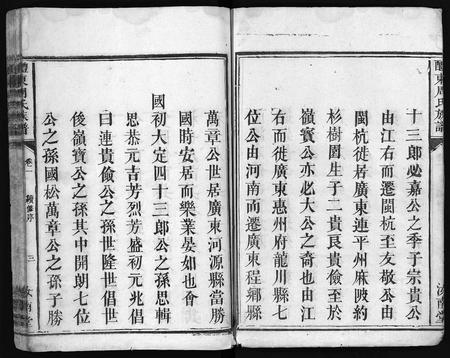 醴東周氏族譜
十三郞必嘉公之季子宗貴公
由江右而遷閩杭至友敬公由
閩杭徙居廣東連平州麻陂約
杉樹圍生子二貴艮貴儉至於
嶺寳公亦必大公之裔也由江
右徙廣東惠州府龍川縣七
位公由河南而遷廣東程鄉縣
汝南堂
萬章公世居廣東河源縣當勝
國時安居而樂業晏如也會
國初大定四十三郞公之孫思輯
思恭元吉芳烈芳盛初元兆倡
曰連貴儉公之孫世隆世倡世
後嶺寳公之孫其中開朗七位
公之孫國松萬章公之孫子勝
醴東周氏族譜
卷一
續修序
三
汝南堂